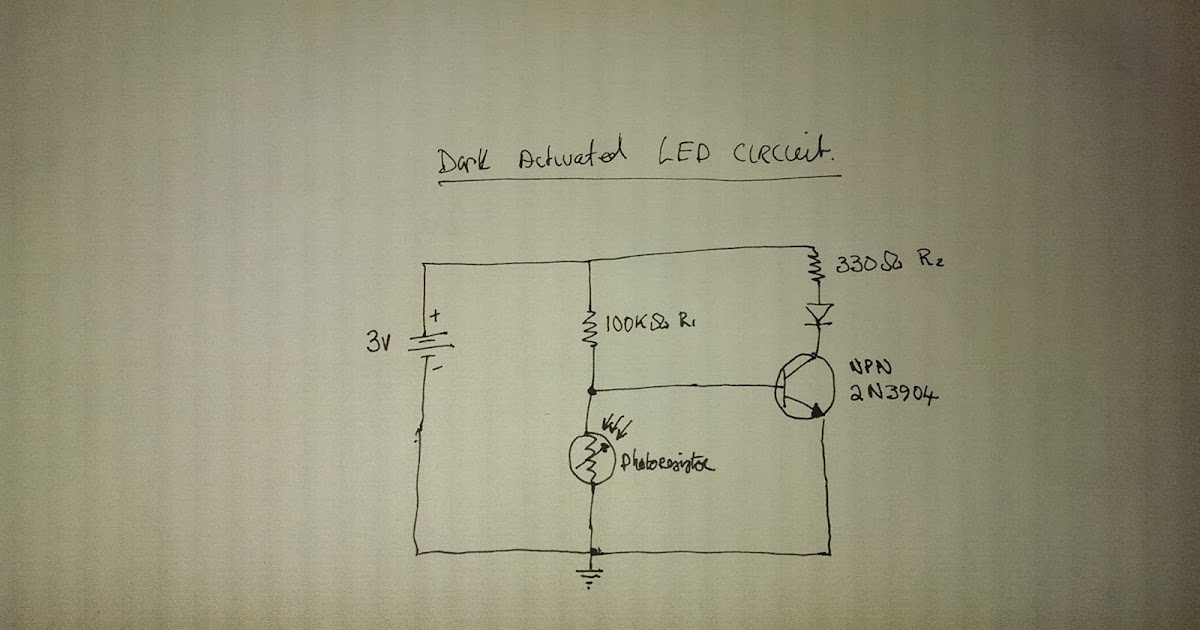 Dark Activated LED CIRCUIT.
330Ω R2
+
100KΩ R1
3V
-
NPN
2N3904
Photoresistor